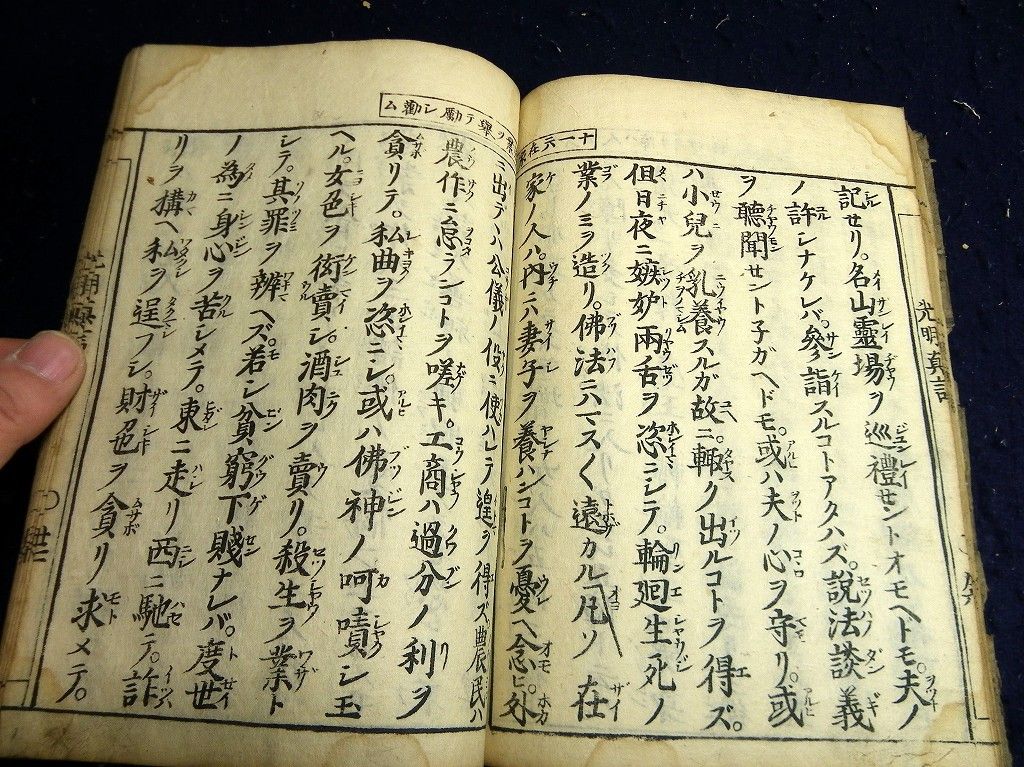 光明真言
十一六在家
記セリ。名山靈場ヲ巡禮セントオモヘドモ。夫ノ
許シナケレバ。參詣スルコトアタハズ。說法談義
ヲ聽聞セント子ガヘドモ。或ハ夫ノ心ヲ守リ。或
ハ小兒ヲ乳養スルガ故ニ。輙ク出ルコトヲ得ズ。
但日夜ニ嫉妒兩舌ヲ恣ニシテ。輪廻生死ノ
業ノミヲ造リ。佛法ニハマスく遠カル凡ソ在
家ノ人ハ。內ニハ妻子ヲ養ハンコトヲ憂ヘ念ヒ。外
ヲ舉テ勵シ勸ム
ニ出デハ公儀ノ役ニ使ハレテ遑ヲ得ズ農民ハ
農作ニ怠ランコトヲ嗟キ。工商ハ過分ノ利ヲ
貪リテ。私曲ヲ恣ニシ。或ハ佛神ノ呵嘖シ玉
ヘル。女色ヲ衒賣シ。酒肉ヲ賣リ。殺生ヲ業ト
シテ。其罪ヲ辨ヘズ。若シ貧窮下賤ナレバ。度世
ノ為ニ身心ヲ苦シメテ。東ニ走リ西ニ馳テ。詐
リヲ搆ヘ私ヲ逞フシ。財色ヲ貪リ求メテ。